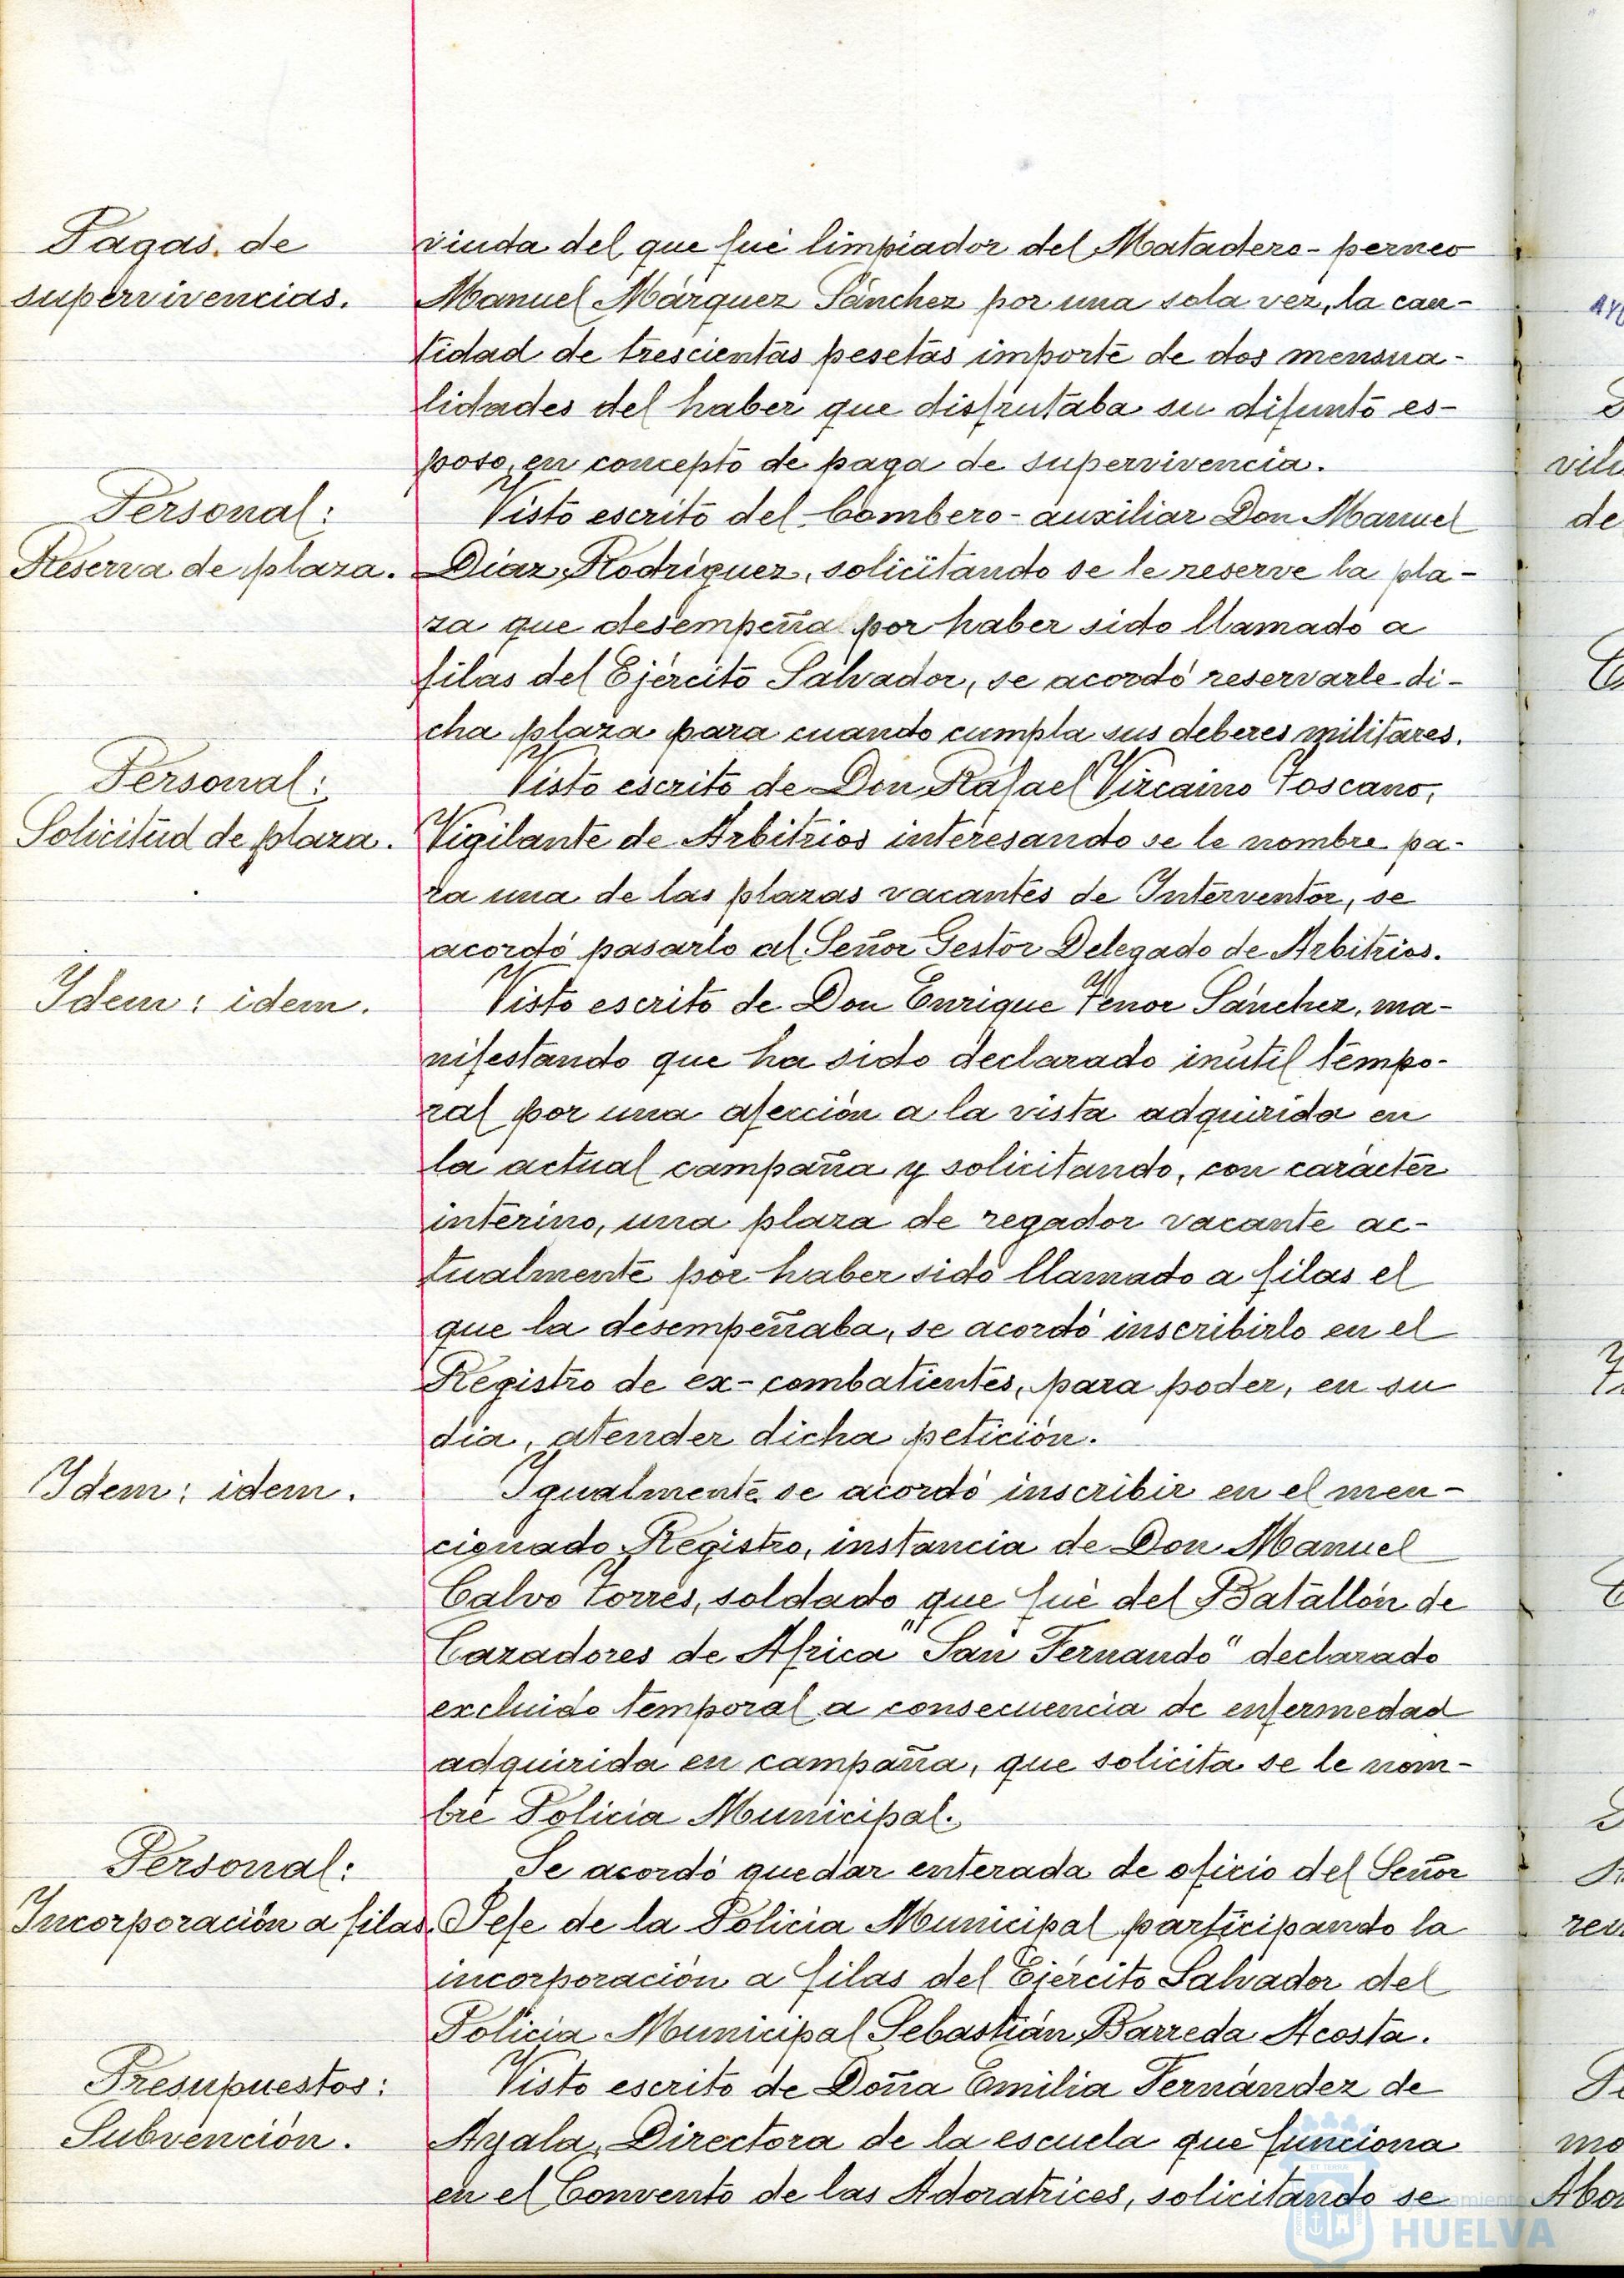 Pagas de
supervivencias.
viuda del que fué limpiador del Matadero-perneo
Manuel Márquez Sánchez por una sola vez, la can-
tidad de trescientas pesetas importe de dos mensua-
lidades del haber que disfrutaba su difunto es-
poso, en concepto de paga de supervivencia.
Personal:
Reserva de plaza.
Visto escrito del bombero-auxiliar Don Manuel
Díaz Rodríguez, solicitando se le reserve la pla-
za que desempeña por haber sido llamado a
filas del Ejército Salvador, se acordó reservarle di-
cha plaza para cuando cumpla sus deberes militares.
Personal:
Solicitud de plaza.
Visto escrito de Don Rafael Vizcaino Toscano,
Vigilante de Arbitrios interesando se le nombre pa-
ra una de las plazas vacantes de Interventor, se
acordó pasarlo al Señor Gestor Delegado de Arbitrios.
Idem: idem.
Visto escrito de Don Enrique Tenor Sánchez, ma-
nifestando que ha sido declarado inútil tempo-
ral por una afección a la vista adquirida en
la actual campaña y solicitando, con carácter
interino, una plaza de regador vacante ac-
tualmente por haber sido llamado a filas el
que la desempeñaba, se acordó inscribirlo en el
Registro de ex-combatientes, para poder, en su
día, atender dicha petición.
Idem: idem.
Igualmente se acordó inscribir en el men-
cionado Registro, instancia de Don Manuel
Calvo Torres, soldado que fué del Batallón de
Cazadores de Africa "San Fernando" declarado
excluido temporal a consecuencia de enfermedad
adquirida en campaña, que solicita se le nom-
bre Policia Municipal.
Personal:
Incorporación a filas.
Se acordó quedar enterada de oficio del Señor
Jefe de la Policia Municipal participando la
incorporación a filas del Ejército Salvador del
Policia Municipal Sebastián Barreda Acosta.
Presupuestos:
Subvención.
Visto escrito de Doña Emilia Fernández de
Ayala, Directora de la escuela que funciona
en el Convento de las Adoratrices, solicitando se
HUELVA